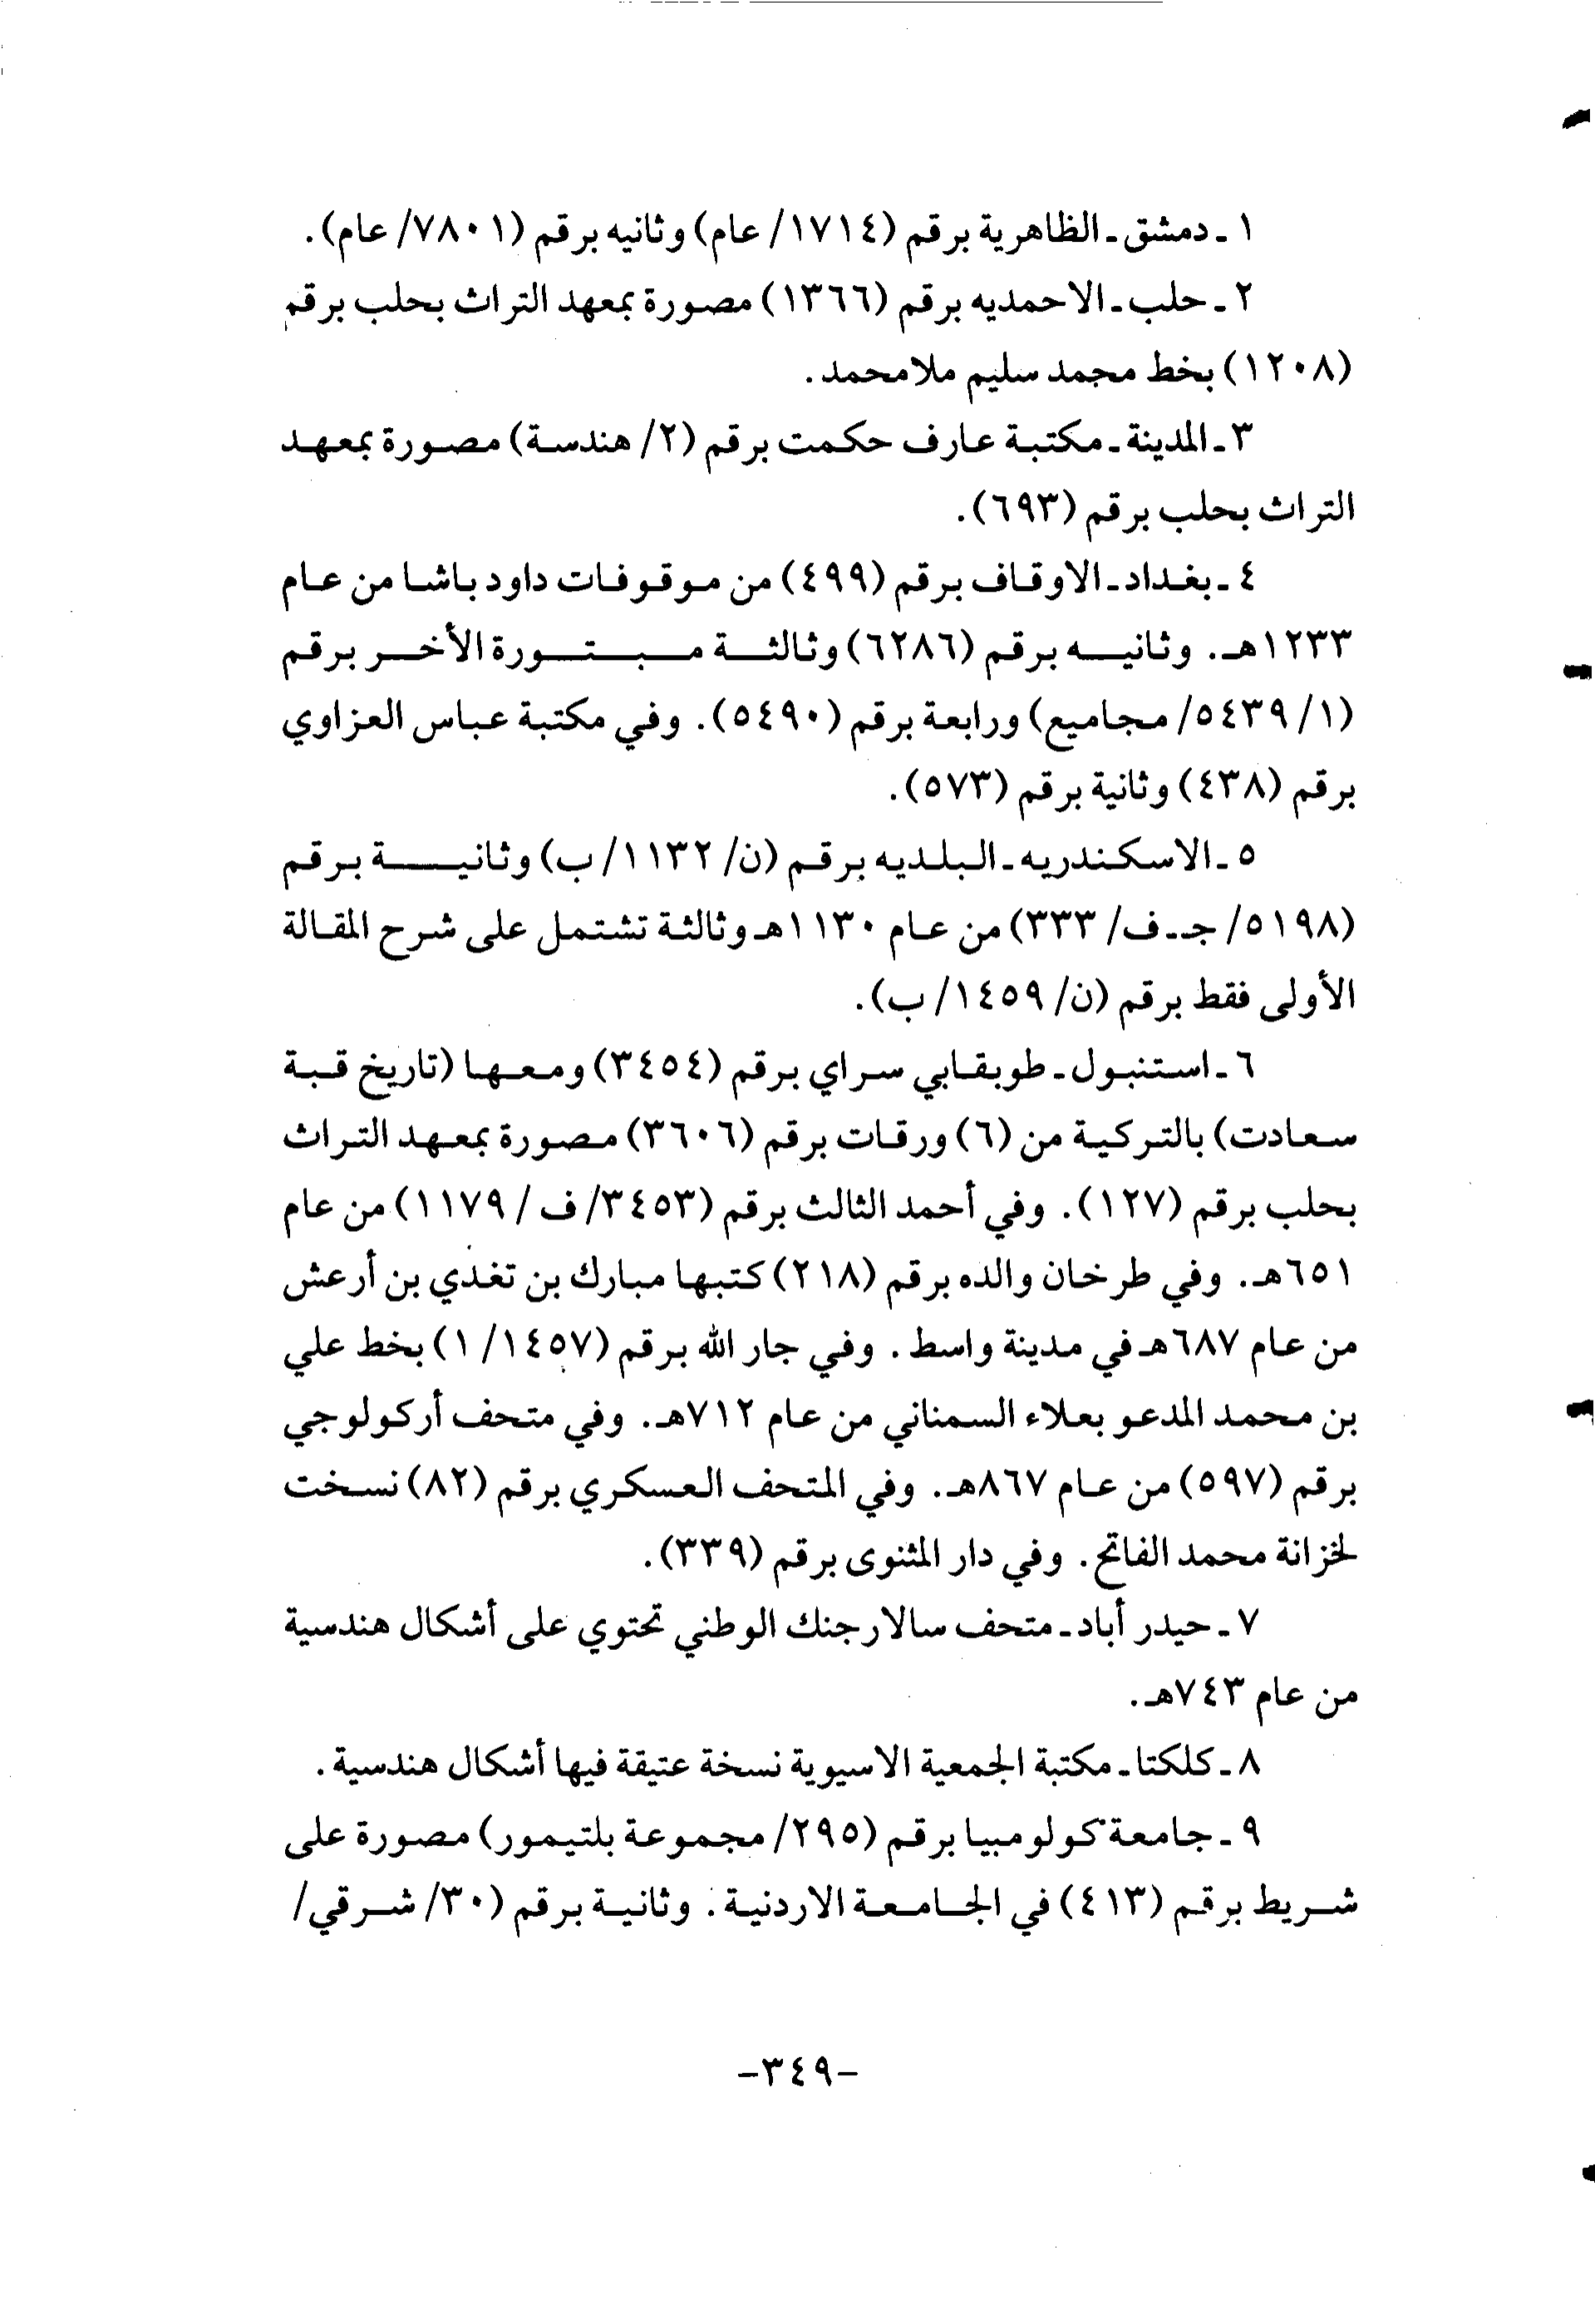 ١ ـ دمشق ـ الظاهرية برقم (١٧١٤/ عام) وثانيه برقم (٧٨٠١/ عام).
٢ ـ حلب ـ الاحمديه برقم (١٣٦٦) مصورة بمعهد التراث بحلب برقم
(١٢٠٨) بخط محمد سليم ملامحمد.
٣ ـ المدينة ـ مكتبة عارف حكمت برقم (٢/ هندسة) مصورة بمعهد
التراث بحلب برقم (٦٩٣).
٤ ـ بغداد ـ الاوقاف برقم (٤٩٩) من موقوفات داود باشا من عام
١٢٣٣هـ. وثانيه برقم (٦٢٨٦) وثالثة مبتورة الأخر برقم
(١/ ٥٤٣٩/ مجاميع) ورابعة برقم (٥٤٩٠). وفي مكتبة عباس العزاوي
برقم (٤٣٨) وثانية برقم (٥٧٣).
٥ ـ الاسكندريه ـ البلديه برقم (ن/ ١١٣٢/ ب) وثانية برقم
(٥١٩٨/ جـ ـ ف/ ٣٣٣) من عام ١١٣٠هـ وثالثة تشتمل على شرح المقالة
الأولى فقط برقم (ن/ ١٤٥٩/ ب).
٦ ـ استنبول ـ طوبقابي سراي برقم (٣٤٥٤) ومعها (تاريخ قبة
سعادت) بالتركية من (٦) ورقات برقم (٣٦٠٦) مصورة بمعهد التراث
بحلب برقم (١٢٧). وفي أحمد الثالث برقم (٣٤٥٣/ ف/ ١١٧٩) من عام
٦٥١هـ. وفي طرخان والده برقم (٢١٨) كتبها مبارك بن تغدي بن أرعش
من عام ٦٨٧هـ في مدينة واسط. وفي جار الله برقم (١٤٥٧/ ١) بخط علي
بن محمد المدعو بعلاء السمناني من عام ٧١٢هـ. وفي متحف أركولوجي
برقم (٥٩٧) من عام ٨٦٧هـ. وفي المتحف العسكري برقم (٨٢) نسخت
لخزانة محمد الفاتح. وفي دار المثنوى برقم (٣٣٩).
٧ ـ حيدر أباد ـ متحف سالارجنك الوطني تحتوي على أشكال هندسية
من عام ٧٤٣هـ.
٨ ـ كلكتا ـ مكتبة الجمعية الاسيوية نسخة عتيقة فيها أشكال هندسية.
٩ ـ جامعة كولومبيا برقم (٢٩٥/ مجموعة بلتيمور) مصورة على
شريط برقم (٤١٣) في الجامعة الاردنية. وثانية برقم (٣٠/ شرقي/
-٣٤٩-